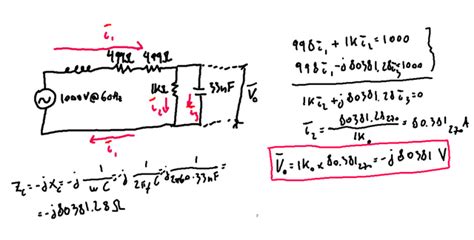 i₁
499Ω 499Ω
1000V@60Hz
1KΩ
i₂
33nF
i₃
V̄₀
i₁
Z_c=-jX_c=-j 1/(ωC)=-j 1/(2πfC)=-j 1/(2π60·33nF)=
=-j80381.28Ω
998ī₁+1Kī₂=1000
998ī₁-j80381.28ī₃=1000
1Kī₂+j80381.28ī₃=0
ī₂=80381.28₂₇₀/1K₀=80.381₂₇₀A
V̄₀=1K₀×80.381₂₇₀=-j80381 V